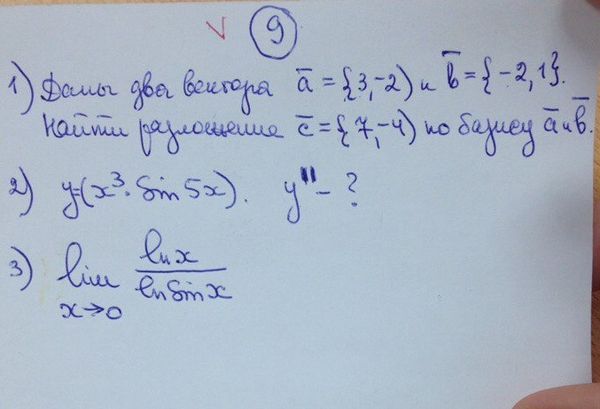 V 9
1) Даны два вектора a̅ = {3, -2) и b̅ = {-2, 1}.
Найти разложение c̅ = {7, -4) по базису a̅ и b̅.
2) y=(x³· Sin 5x). y'' - ?
3) lim x→0 ln x / ln Sin x